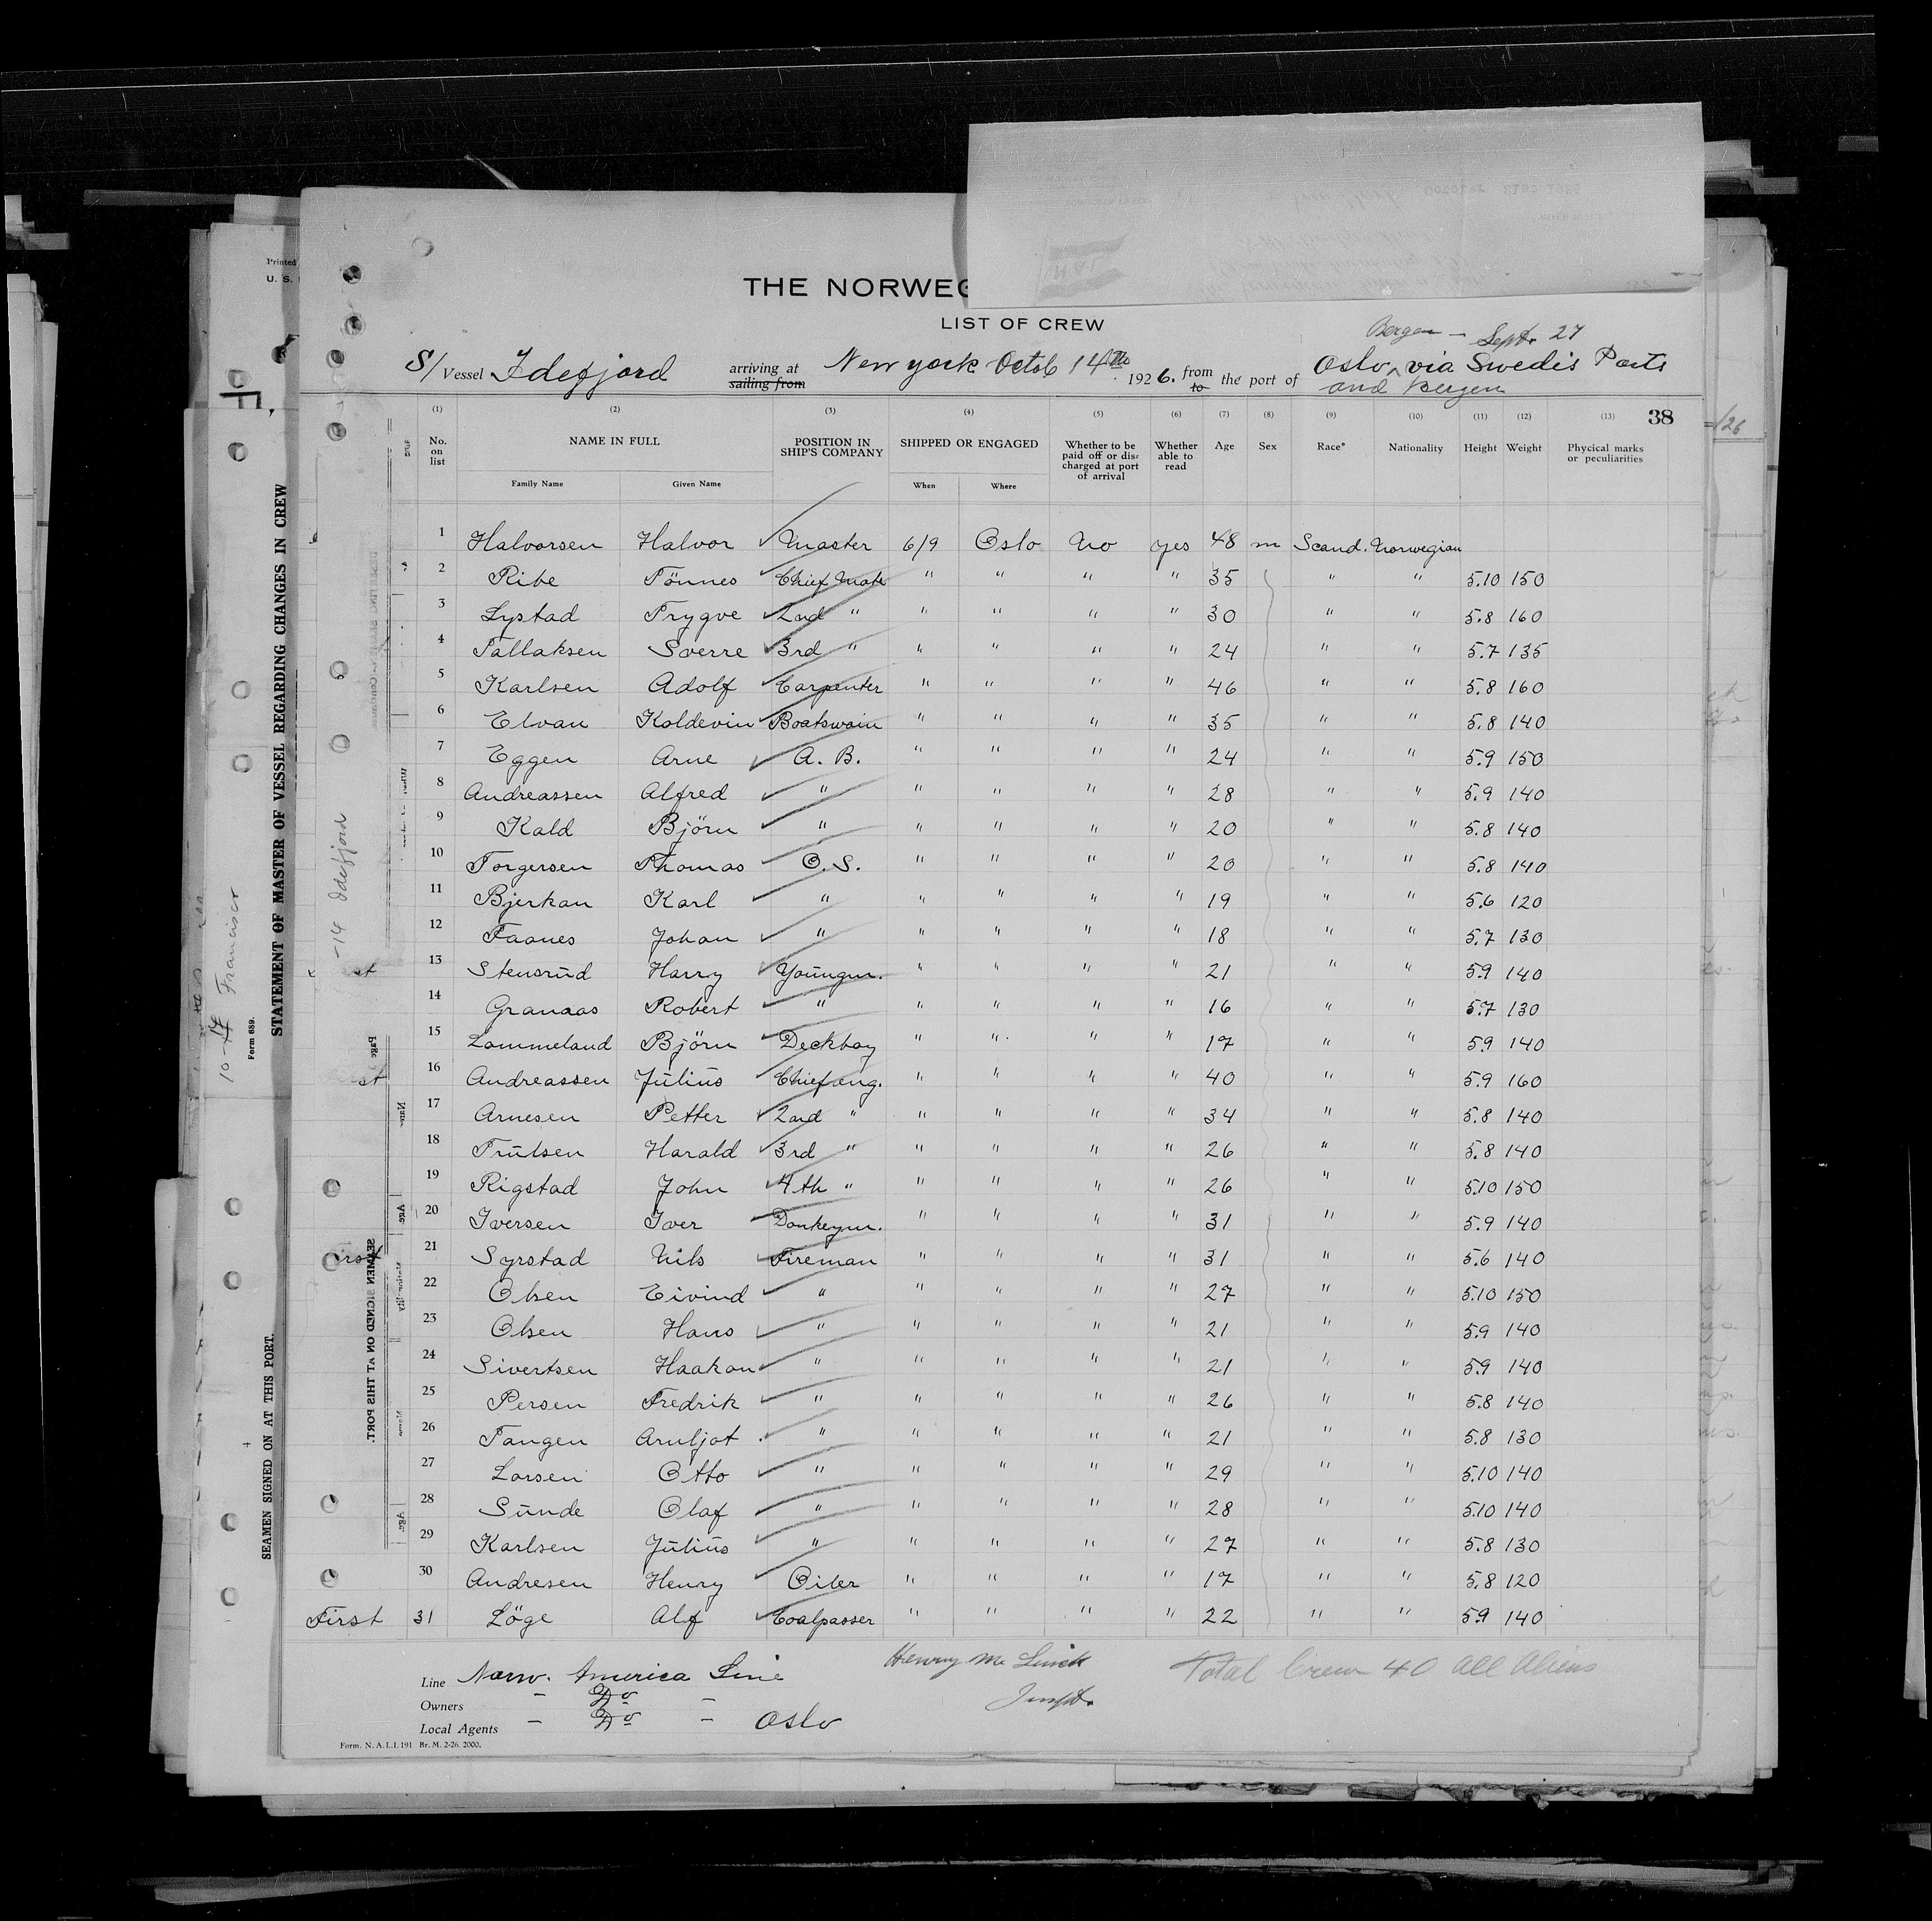 THE NORWEG
LIST OF CREW
Bergen - Sept. 27
S/ Vessel Idefjord arriving at sailing from New York Octob 14th 1926. from to the port of Oslo via Swedis Ports and Bergen
38
(1) (2) (3) (4) (5) (6) (7) (8) (9) (10) (11) (12) (13)
No. on list NAME IN FULL POSITION IN SHIP'S COMPANY SHIPPED OR ENGAGED Whether to be paid off or discharged at port of arrival Whether able to read Age Sex Race* Nationality Height Weight Phycical marks or peculiarities
Family Name Given Name When Where
1 Halvorsen Halvor Master 6/9 Oslo No yes 48 m Scand. Norwegian
2 Ribe Tönnes Chief Mate " " " " 35 " " 5.10 150
3 Lystad Trygve 2nd " " " " " 30 " " 5.8 160
4 Tallaksen Sverre 3rd " " " " " 24 " " 5.7 135
5 Karlsen Adolf Carpenter " " " " 46 " " 5.8 160
6 Elvan Koldevin Boatswain " " " " 35 " " 5.8 140
7 Eggen Arne A. B. " " " " 24 " " 5.9 150
8 Andreassen Alfred " " " " " 28 " " 5.9 140
9 Kald Björn " " " " " 20 " " 5.8 140
10 Torgersen Thomas O. S. " " " " 20 " " 5.8 140
11 Bjerkan Karl " " " " " 19 " " 5.6 120
12 Faanes Johan " " " " " 18 " " 5.7 130
13 Stensrud Harry Youngm. " " " " 21 " " 5.9 140
14 Granaas Robert " " " " " 16 " " 5.7 130
15 Lommeland Björn Deckboy " " " " 17 " " 5.9 140
16 Andreassen Julius Chief eng. " " " " 40 " " 5.9 160
17 Arnesen Petter 2nd " " " " " 34 " " 5.8 140
18 Trulsen Harald 3rd " " " " " 26 " " 5.8 140
19 Rigstad John 4th " " " " " 26 " " 5.10 150
20 Iversen Iver Donkeym. " " " " 31 " " 5.9 140
21 Syrstad Nils Fireman " " " " 31 " " 5.6 140
22 Olsen Eivind " " " " " 27 " " 5.10 150
23 Olsen Hans " " " " " 21 " " 5.9 140
24 Sivertsen Haakon " " " " " 21 " " 5.9 140
25 Persen Fredrik " " " " " 26 " " 5.8 140
26 Tangen Arnljot " " " " " 21 " " 5.8 130
27 Larsen Otto " " " " " 29 " " 5.10 140
28 Sunde Olaf " " " " " 28 " " 5.10 140
29 Karlsen Julius " " " " " 27 " " 5.8 130
30 Andresen Henry Oiler " " " " 17 " " 5.8 120
First 31 Löge Alf Coalpasser " " " " 22 " " 5.9 140
Line Norw. America Line
Owners - Do -
Local Agents - Do - Oslo
Henry Mc
Total Crew 40 all Aliens
Form. N. A. L. I. 191 Br. M. 2-26. 2000.
Printed
U. S.
STATEMENT OF MASTER OF VESSEL REGARDING CHANGES IN CREW
SEAMEN SIGNED ON AT THIS PORT.
Form 689.
-14 Idefjord
Francisco
SEAMEN SIGNED ON AT THIS PORT.